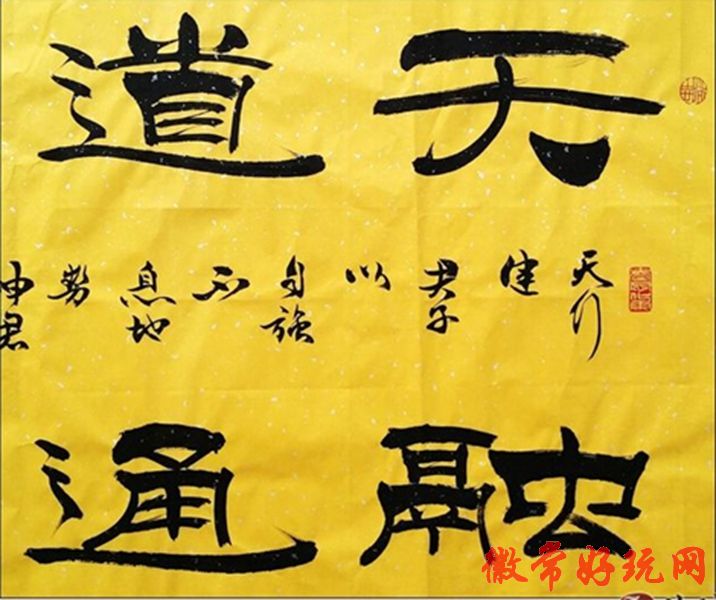 天道
天行
健
君子
以
自強
不
息地
势
坤君
融通
徽常好玩网